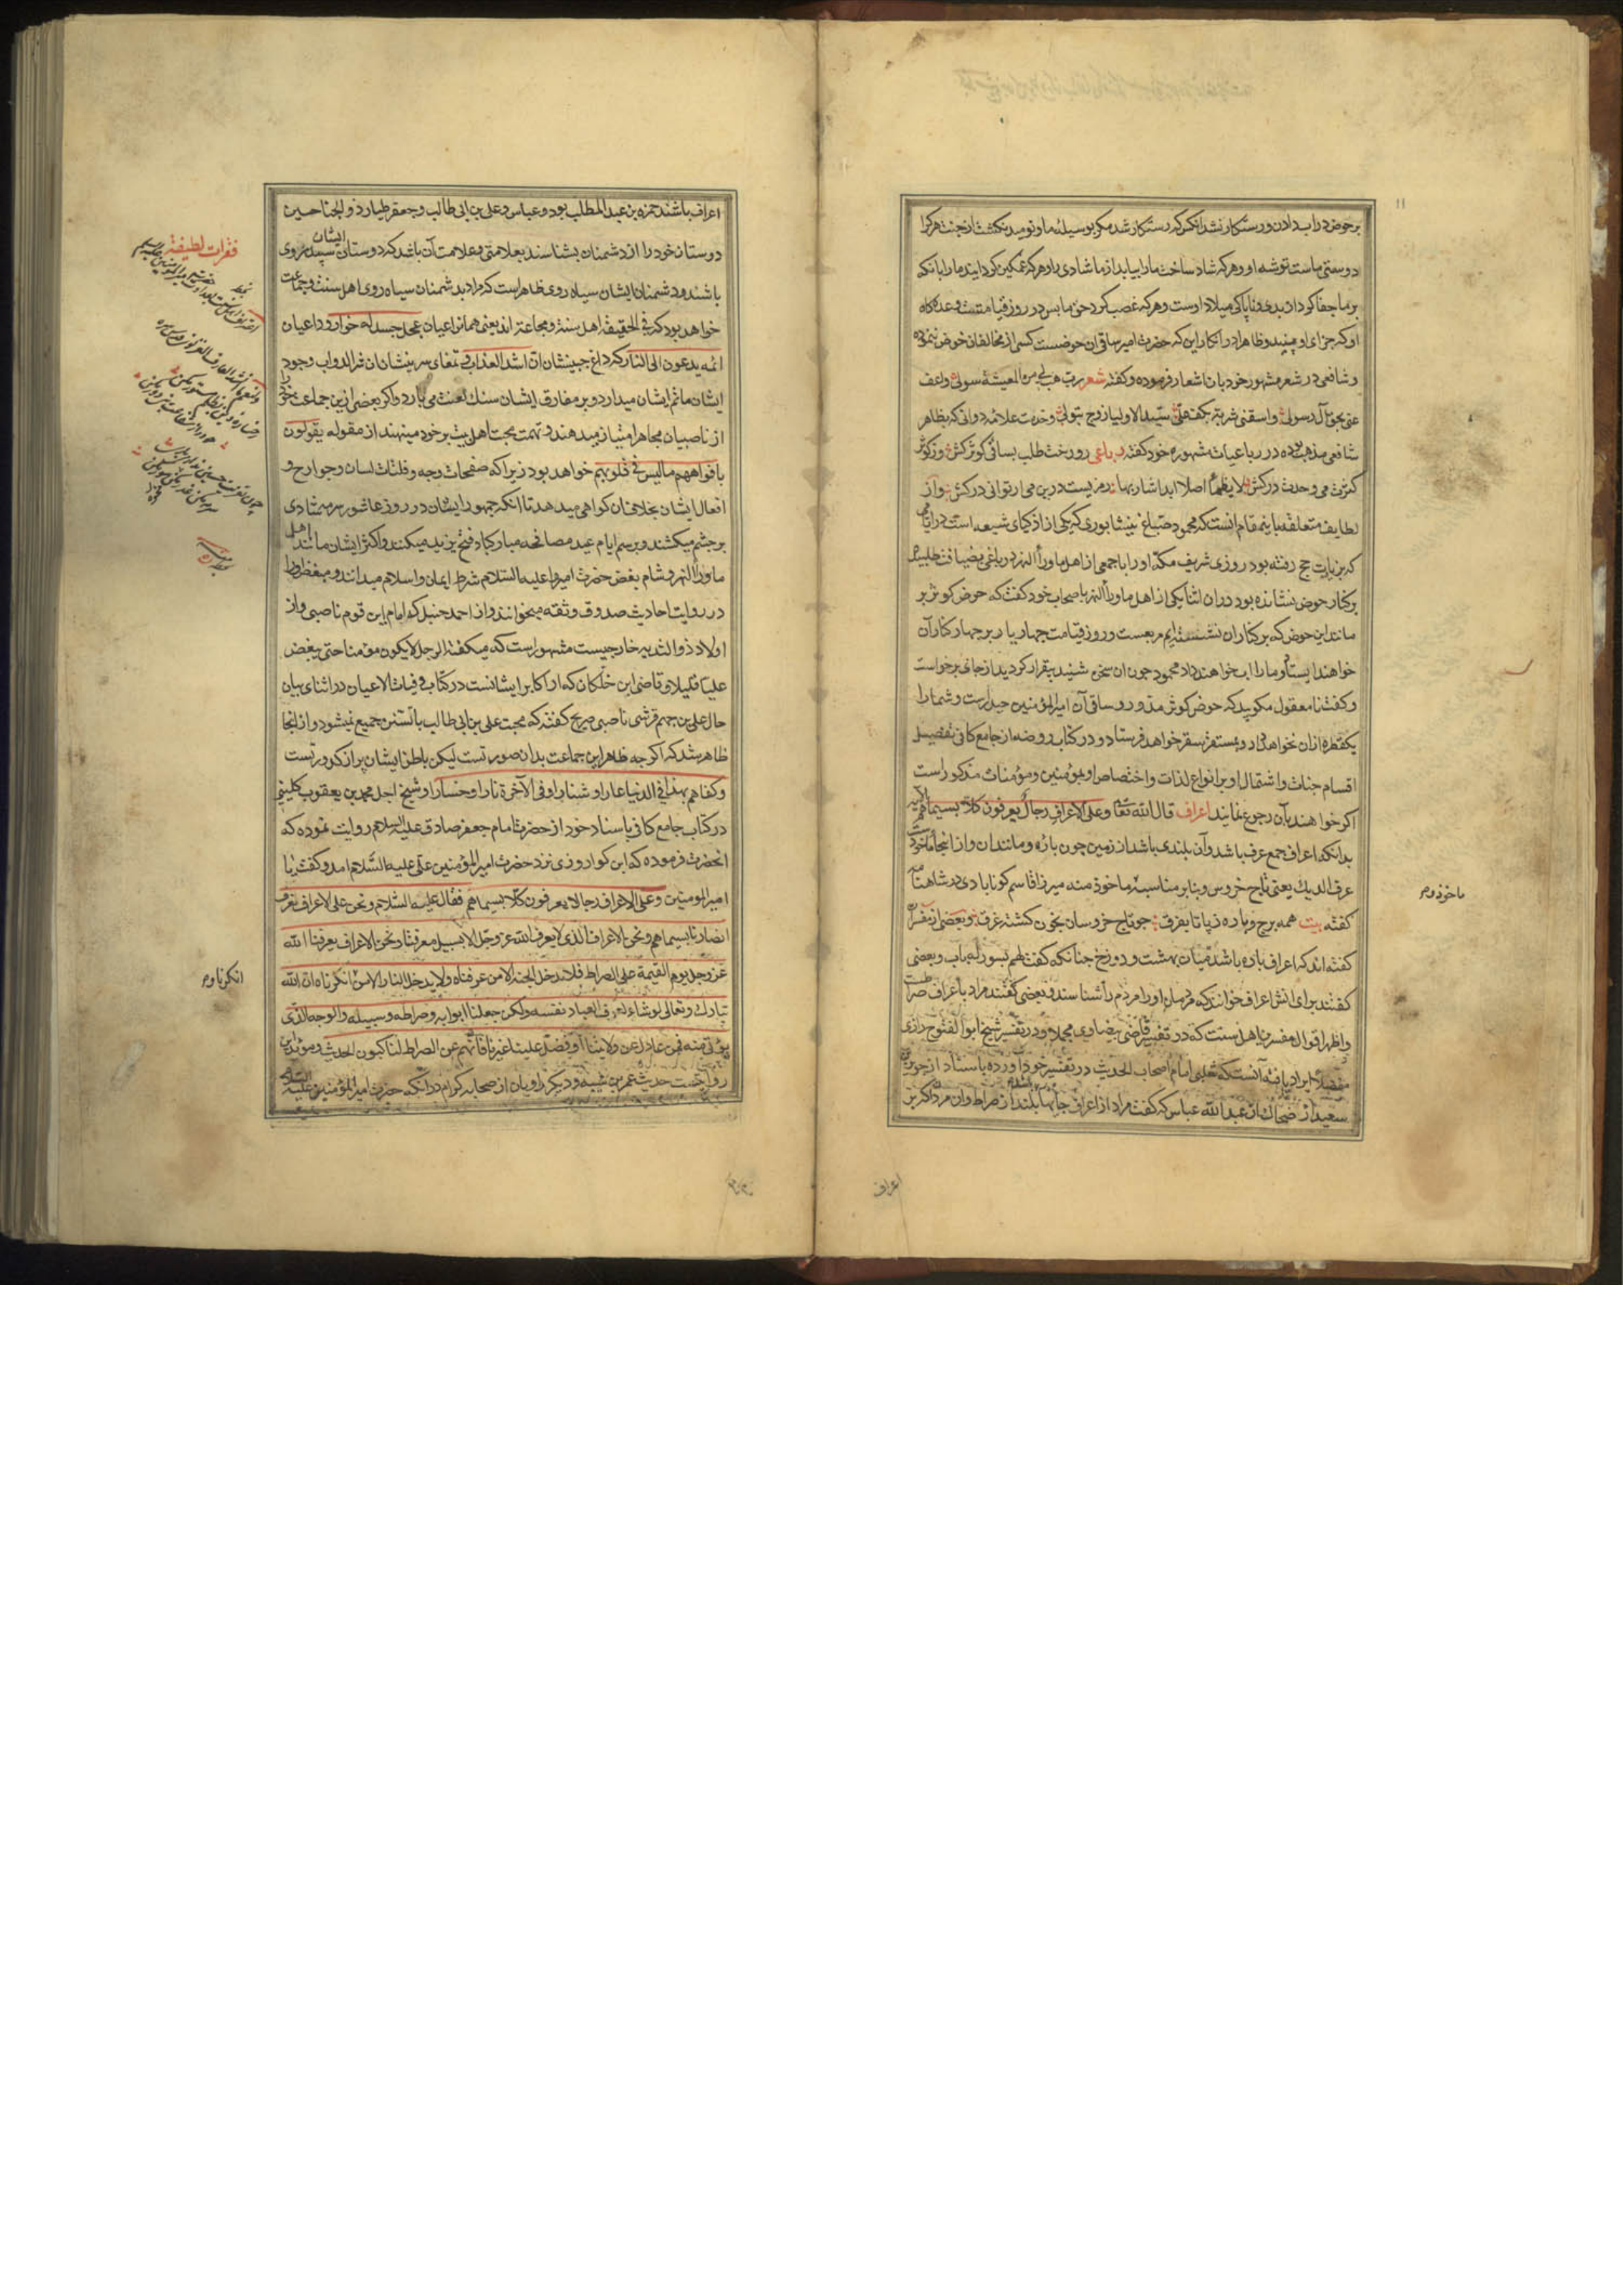 برحوض در اب دادن و رستکار نشد انکس که رستکار شد مکر بوسیله ما و نومید نکشت از جنت هر کرا
دوستی ماست توشه او و هر که شاد ساخت ما را بیابد از ما شادی و هر که غمکین کردانید ما را با انکه
بر ما جفا کرد از بدی و ناپاکی میلاد اوست و هر که غصب کرد حق ما پس در روز قیامتست وعده کاه
او که جزای او بیند و ظاهرا در انکار این که حضرت امیر ساقی ان حوضست کسی از مخالفان خوض ننموده
و شافعی در شعر مشهور خود بان اشعار فرموده و کفته شعر رب هب لی من المعیشة سولی واعف
عنی بحق آل رسول واسقنی شربة بکف علی سید الاولیا زوج بتول و حضرت علامه دوانی که بظاهر
شافعی مذهب بوده در رباعیات مشهوره خود کفته رباعی رو رخت طلب بساقی کوثر کش وز کوثر
کثرت می وحدت درکش لا یظمأ اصلا ابدا شاربها رمزیست درین می ار توانی درکش و از
لطایف متعلقه باینمقام انست که محمود صباغ نیشابوری که یکی از اذکیای شیعه است در ایامی
که بزیارت حج رفته بود روزی شریف مکه او را با جمعی از اهل ماوراالنهر در باغی بضیافت طلبیده
بر کنار حوض نشانده بود در ان اثنا یکی از اهل ماوراالنهر باصحاب خود کفت که حوض کوثر بر
مانند این حوض که بر کنار ان نشسته ایم مربعست و روز قیامت چهار یار بر چهار کنار آن
خواهند ایستاد و ما را اب خواهند داد محمود چون ان سخن شنید بیقرار کردید از جای برخواست
و کفت نا معقول مکویید که حوض کوثر مدور و ساقی آن امیرالمؤمنین حیدر است و شما را
یکقطره ازان نخواهد داد و بمستقر سقر خواهد فرستاد و در کتاب روضه از جامع کافی تفصیل
اقسام جنات و اشتمال او بر انواع لذات و اختصاص او بمؤمنین و مؤمنات مذکور است
اکر خواهند بآن رجوع نمایند اعراف قال الله تعالی وعلی الاعراف رجال یعرفون کلا بسیماهم الآیه
بدانکه اعراف جمع عرف باشد و آن بلندی باشد از زمین چون باره و مانند ان و از اینجا ماخوذست
عرف الدیك یعنی تاج خروس و بنا بر مناسبة ماخوذ منه میرزا قاسم کونابادی در شاهنامه
کفته بیت همه برج و باره ز پا تا بفرق چو تاج خروسان بخون کشته غرق و بعضی از مفسران
کفته اند که اعراف باره باشد میان بهشت و دوزخ چنانکه کفت لهم بسور له باب و بعضی
کفتند برای انش اعراف خوانند که مردمان او را مردم را شناسند و بعضی کفتند مراد باعراف صراطست
و اظهر اقوال مفسرین اهل سنت که در تفسیر قاضی بیضاوی مجملا و در تفسیر شیخ ابوالفتوح رازی
مفصلا ایراد یافته آنست که ثعلبی امام اصحاب الحدیث در تفسیر خود آورده باسناد از جویبر
سعید از ضحاك از عبدالله عباس که کفت مراد از اعراف جایها بلند از صراط و ان مردان که بر
ماخوذ وم
اعراف
اعراف باشند حمزه بن عبدالمطلب بود و عباس و علی بن ابی طالب و جعفر طیار ذو الجناحین
دوستان خود را از دشمنان بشناسند بعلامتی و علامت آن باشد که دوستان ایشان سپید روی
باشند و دشمنان ایشان سیاه روی ظاهر است که مراد بدشمنان سیاه روی اهل سنت و جماعت
خواهد بود که فی الحقیقة اهل سنة و مجاعة اند یعنی همان اعیان عجل جسد له خوار و داعیان
ائمه یدعون الی النار که داغ جبینشان ان اشد العذاب تمغای سرینشان ان شر الدواب وجود
ایشان ماتم ایشان میدارد و بر مفارق ایشان سنك لعنت می بارد و اکر بعضی ازین جماعت خود را
از ناصبیان مجاهر امتیاز میدهند و تهمت محبت اهل بیت بر خود مینهند از مقوله یقولون
بافواههم مالیس فی قلوبهم خواهد بود زیرا که صفحات وجه و فلتات لسان و جوارح و
افعال ایشان بخلاف ان کواهی میدهد تا انکه جمهور ایشان در روز عاشور سرمه شادی
بر چشم میکشند و برسم ایام عید مصافحه مبارکباد فتح یزید میکنند و اکثر ایشان مانند اهل
ماوراالنهر و شام بغض حضرت امیر را علیه السلام شرط ایمان و اسلام میدانند و مبغض او را
در روایت احادیث صدوق و ثقه میخوانند و از احمد حنبل که امام این قوم ناصبی و از
اولاد ذو الثدیه خارجیست مشهور است که میکفته الرجل لا یکون مؤمنا حتی یبغض
علیا قلیلا و قاضی ابن خلکان که از اکابر ایشانست در کتاب وفیات الاعیان در اثنای بیان
حال علی بن جهم قرشی ناصبی صریح کفته که محبت علی بن ابی طالب با تسنن جمیع نمیشود و از انجا
ظاهر شد که اکر چه ظاهر این جماعت بدان صورتست لیکن باطن ایشان پر از کدورتست
وکفاهم بهذا فی الدنیا عارا وشنارا وفی الآخرة نارا وخسارا و شیخ اجل محمد بن یعقوب کلینی
در کتاب جامع کافی باسناد خود از حضرت امام جعفر صادق علیه السلام روایت نموده که
انحضرت فرموده که ابن کوا روزی نزد حضرت امیر المؤمنین علی علیه السلام امد و کفت یا
امیر المومنین وعلی الاعراف رجال یعرفون کلا بسیماهم فقال علیه السلام ونحن علی الاعراف نعرف
انصارنا بسیماهم ونحن الاعراف الذی لا یعرف الله عز وجل الا بسبیل معرفتنا ونحن الاعراف یعرفنا الله
عز وجل یوم القیمة علی الصراط فلا یدخل الجنة الا من عرفناه ولا یدخل النار الا من انکرناه ان الله
تبارك وتعالی لو شاء لعرف العباد نفسه ولکن جعلنا ابوابه وصراطه وسبیله والوجه الذی
یؤتی منه فمن عادل عن ولایتنا او فضل علینا غیرنا فانهم عن الصراط لناکبون الحدیث و مؤید این
روایتست حدیث عمر بن شیبه و دیکر راویان از صحابه کرام در انکه حضرت امیر المؤمنین علیه السلام
فقرات لطیفة
انکرناه وم